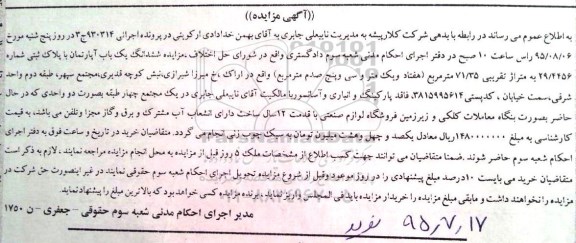 ((آگهی مزایده))
به اطلاع عموم می رساند در رابطه با بدهی شرکت کلارپیشه به مدیریت نایبعلی جابری به آقای بهمن خدادادی ارکوینی در پرونده اجرائی ۹۳۰۳۱۴ج۳ در روز پنج شنبه مورخ
۹۵/۰۸/۰۶ راس ساعت ۱۰ صبح در دفتر اجرای احکام مدنی شعبه سوم دادگستری واقع در شورای حل اختلاف ،مزایده ششدانگ یک باب آپارتمان با پلاک ثبتی شماره
۲۹/۴۴۵۶ به متراژ تقریبی ۷۱/۳۵ مترمربع (هفتاد ویک متر و سی وپنج صدم مترمربع) واقع در اراک ،خ میرزا شیرازی،نبش کوچه قدیری،مجتمع سپهر، طبقه دوم واحد
شرقی،سمت خیابان ، کدپستی ۳۸۱۵۹۹۵۶۱۴، فاقد پارکینگ و انباری وآسانسوربا مالکیت آقای نایبعلی جابری در یک مجتمع چهار طبقه بصورت دو واحدی که در حال
حاضر بصورت بنگاه معاملات کلکی و زیرزمین فروشگاه لوازم صنعتی با قدمت ۱۲سال ساخت دارای انشعاب آب مشترک و برق وگاز مجزا وتلفن می باشد، به قیمت
کارشناسی به مبلغ ۱۴۸۰۰۰۰۰۰۰ریال معادل یکصد و چهل وهشت میلیون تومان به سبک چوب زنی انجام می گردد. متقاضیان خرید در تاریخ و ساعت فوق به دفتر اجرای
احکام شعبه سوم حاضر شوند .ضمنا متقاضیان می توانند جهت کسب اطلاع از مشخصات ملک ۵ روز قبل از مزایده به محل انجام مزایده مراجعه نمایند . لازم به ذکر است
متقاضیان خرید می بایست ۱۰درصد مبلغ پیشنهادی را در روز موعود وقبل از شروع مزایده تحویل اجرای احکام شعبه سوم حقوقی نمایند در غیر اینصورت حق شرکت در
مزایده را نخواهند داشت و مابقی مبلغ مزایده را خریدار مزایده باید فی المجلس واریز نماید. برنده مزایده کسی خواهد بود که بالاترین مبلغ را پیشنهاد نماید.
مدیر اجرای احکام مدنی شعبه سوم حقوقی – جعفری – ن ۱۷۵۰
۹۵٫۷٫۱۷